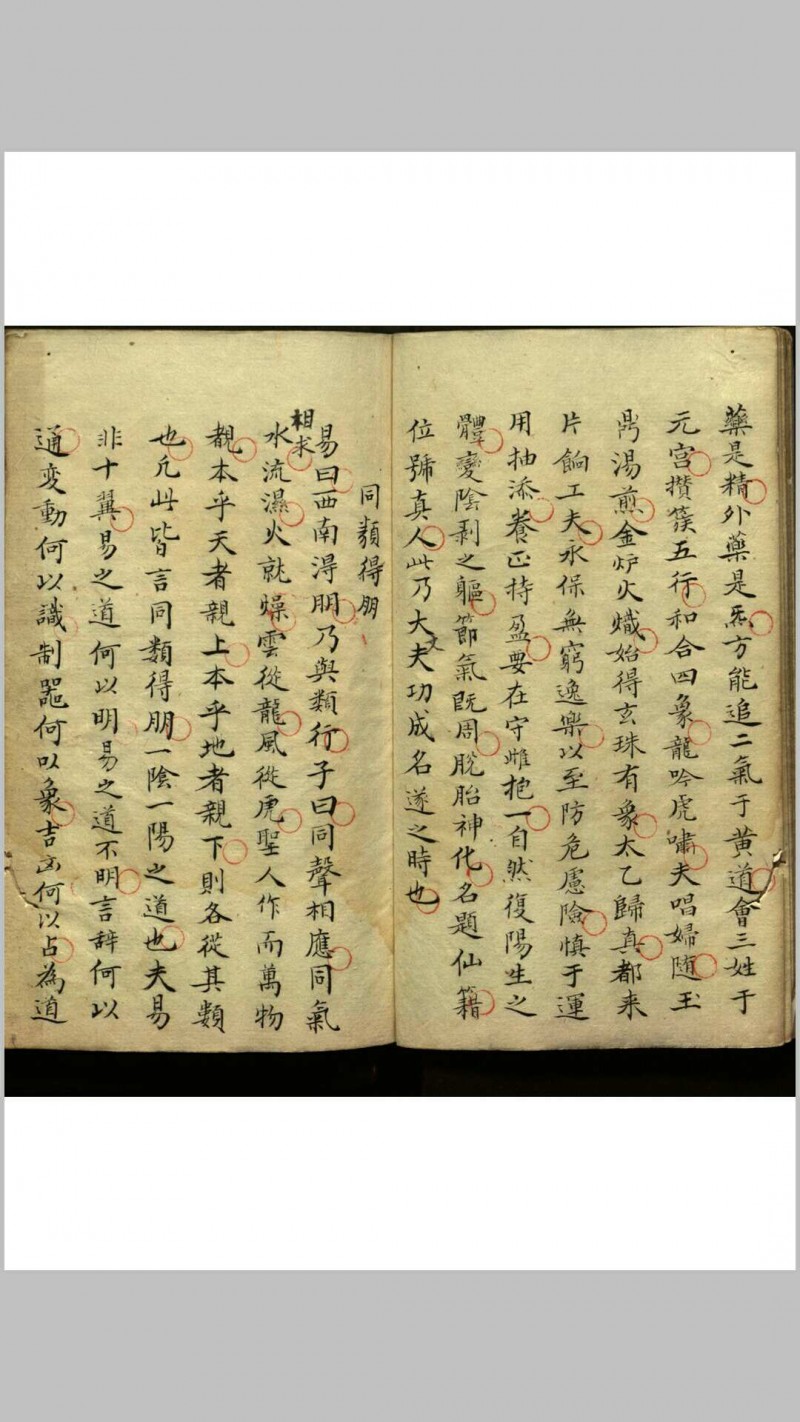 藥是精外藥是炁方能追二氣于黄道會三姓于
元宮攅簇五行和合四象龍吟虎嘯夫唱婦随玉
鼎湯煎金炉火熾始得玄珠有象太乙歸真都来
片餉工夫永保無窮逸樂以至防危慮險慎于運
用抽添養正持盈要在守雌抱一自然復陽生之
體變陰剥之軀節氣既周脫胎神化名題仙籍
位號真人此乃大丈夫功成名遂之時也
同類得朋
易曰西南得朋乃與類行子曰同聲相應同氣
相求水流濕火就燥雲從龍風從虎聖人作而萬物
覩本乎天者親上本乎地者親下則各從其類
也凡此皆言同類得朋一陰一陽之道也夫易
非十翼易之道何以明易之道不明言辞何以
通変動何以識制噐何以象吉凶何以占為道